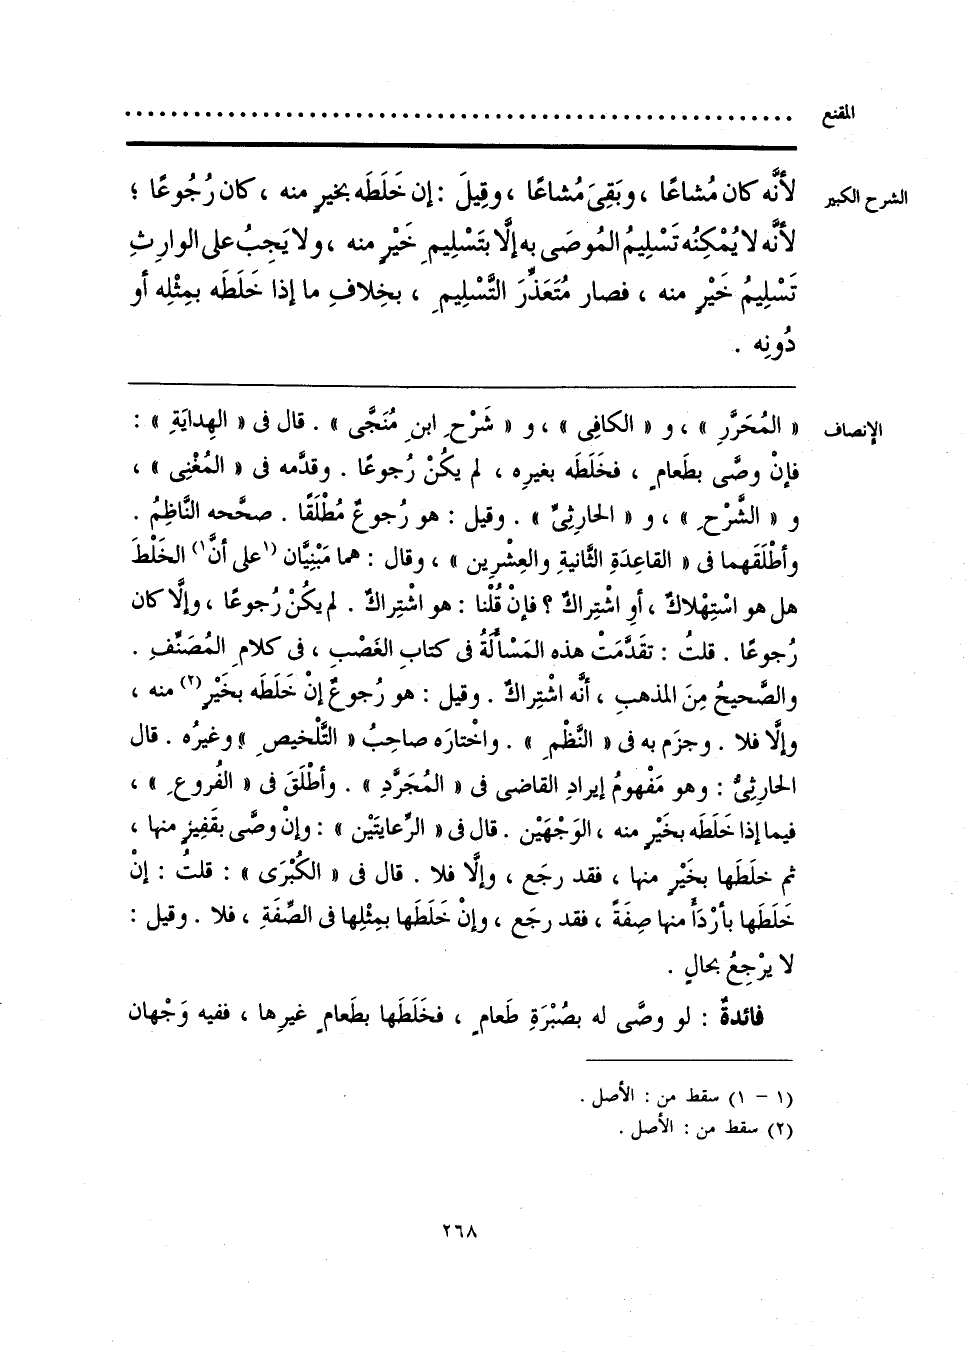 المقنع ........................................................
الشرح الكبير لأنَّه كان مُشاعًا ، وبَقِىَ مُشاعًا ، وقِيلَ : إن خَلَطَه بخيرٍ منه ، كان رُجُوعًا ؛
لأنَّه لا يُمْكِنُه تَسْلِيمُ المُوصَى به إلَّا بتَسْلِيمِ خَيْرٍ منه ، ولا يَجِبُ على الوارِثِ
تَسْلِيمُ خَيْرٍ منه ، فصار مُتَعَذِّرَ التَّسْلِيمِ ، بخِلافِ ما إذا خَلَطَه بمِثْلِه أو
دُونِه .
الإنصاف « المُحَرَّرِ » ، و « الكافِى » ، و « شَرْحِ ابنِ مُنَجَّى » . قال فى « الهِدايَةِ » :
فإنْ وصَّى بطَعامٍ ، فخَلَطَه بغيرِه ، لم يكُنْ رُجوعًا . وقدَّمه فى « المُغْنِى » ،
و « الشَّرْحِ » ، و « الحارِثِىِّ » . وقيل : هو رُجوعٌ مُطْلَقًا . صحَّحه النَّاظِمُ .
وأطْلَقَهما فى « القاعِدَةِ الثَّانيةِ والعِشْرِين » ، وقال : هما مَبْنِيَّان (١على أنَّ١) الخَلْطَ
هل هو اسْتِهْلاكٌ ، أوِ اشْتِراكٌ ؟ فإنْ قُلْنا : هو اشْتِراكٌ . لم يكُنْ رُجوعًا ، وإلَّا كان
رُجوعًا . قلتُ : تقَدَّمَتْ هذه المَسْألَةُ فى كتابِ الغَصْبِ ، فى كلامِ المُصَنِّفِ .
والصَّحيحُ مِنَ المذهبِ ، أنَّه اشْتِراكٌ . وقيل : هو رُجوعٌ إنْ خَلَطَه بخَيْرٍ(٢) منه ،
وإلَّا فلا . وجزَم به فى « النَّظْمِ » . واخْتارَه صاحِبُ « التَّلْخيصِ » وغيرُه . قال
الحارِثِىُّ : وهو مَفْهومُ إيرادِ القاضى فى « المُجَرَّدِ » . وأطْلَقَ فى « الفُروعِ » ،
فيما إذا خَلَطَه بخَيْرٍ منه ، الوَجْهَيْن . قال فى « الرِّعايتَيْن » : وإنْ وصَّى بقَفِيزٍ منها ،
ثم خلَطَها بخَيْرٍ منها ، فقد رجَع ، وإلَّا فلا . قال فى « الكُبْرَى » : قلتُ : إنْ
خَلَطَها بأرْدَأَ منها صِفَةً ، فقد رجَع ، وإنْ خَلَطَها بمِثْلِها فى الصِّفَةِ ، فلا . وقيل :
لا يرْجِعُ بحالٍ .
فائدةٌ : لو وصَّى له بصُبْرَةِ طَعامٍ ، فخَلَطَها بطَعامٍ غيرِها ، ففيه وَجْهان
(١ - ١) سقط من : الأصل .
(٢) سقط من : الأصل .
٢٦٨